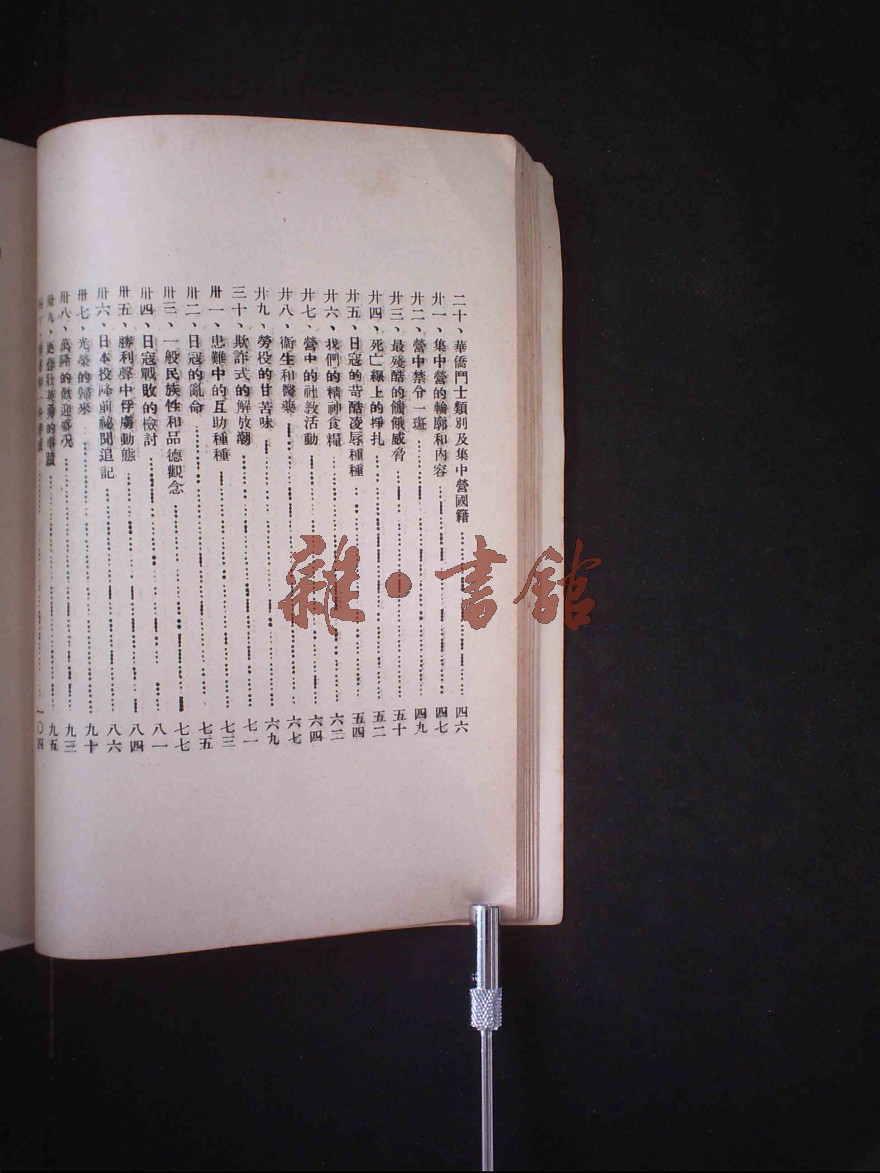 二十、華僑鬥士類別及集中營國籍 四六
廿一、集中營的輪廓和內容 四七
廿二、營中禁令一斑 四九
廿三、最殘酷的饑餓威脅 五十
廿四、死亡線上的掙扎 五二
廿五、日寇的苛酷凌辱種種 五四
廿六、我們的精神食糧 六二
廿七、營中的社教活動 六四
廿八、衛生和醫藥 六七
廿九、勞役的甘苦味 六九
三十、欺詐式的解放潮 七一
卅一、患難中的互助種種 七三
卅二、日寇的亂命 七五
卅三、一般民族性和品德觀念 七七
卅四、日寇戰敗的檢討 八一
卅五、勝利聲中俘虜動態 八四
卅六、日本投降前祕聞追記 八六
卅七、光榮的歸來 九十
卅八、萬隆的歡迎盛况 九三
卅九、壯英勇的事蹟 九五
一〇四
雜·書館